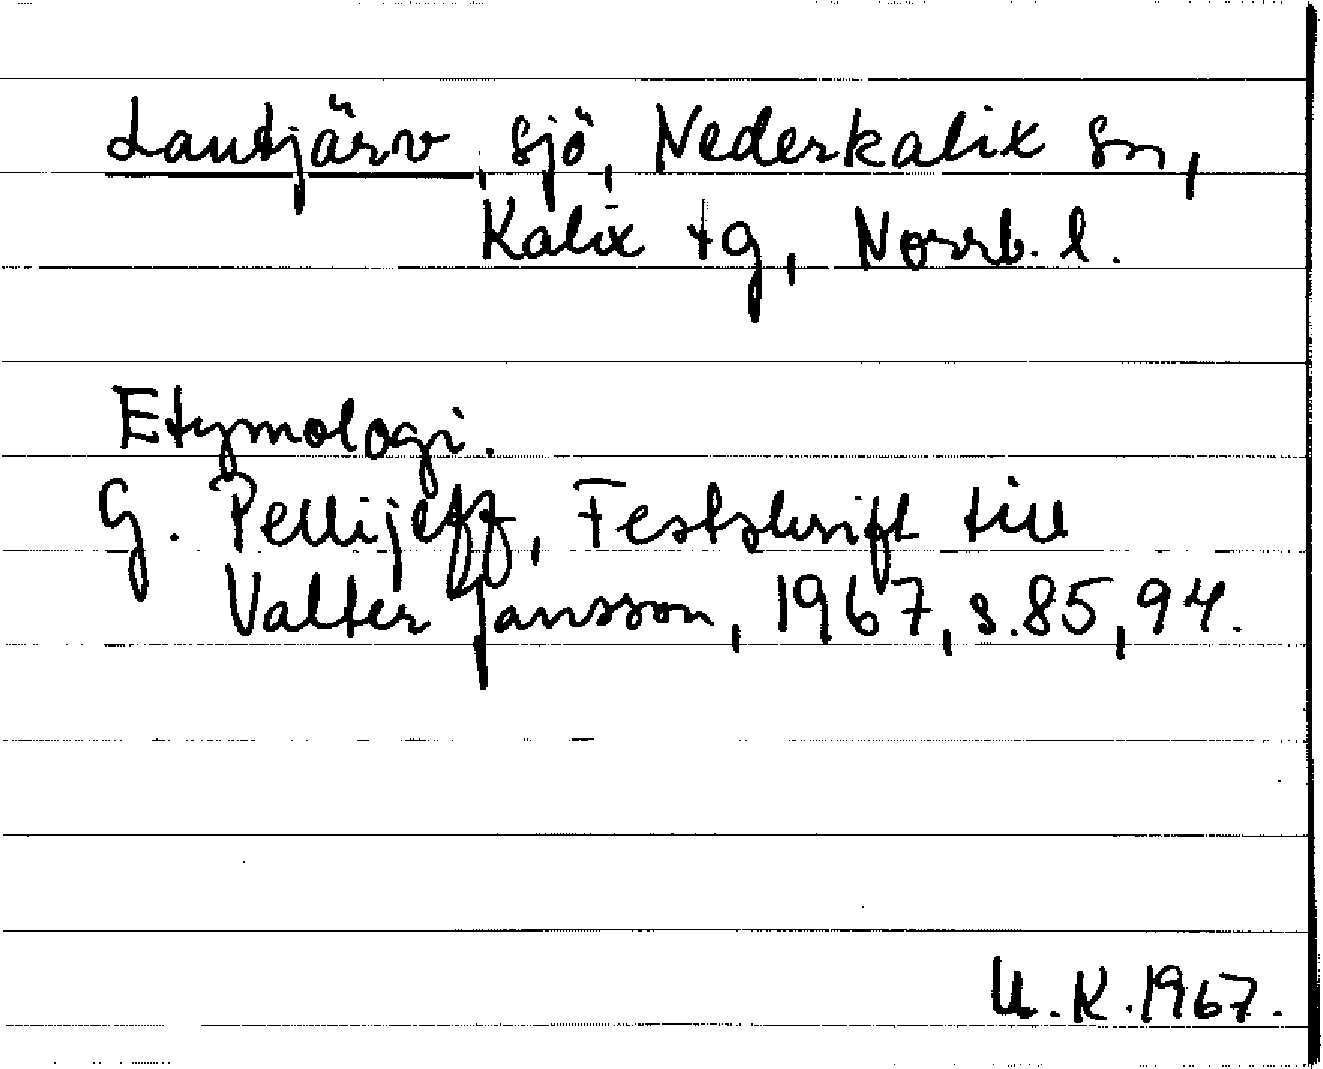 Lautjärv, sjö, Nederkalix sn,
Kalix tg, Norrb. l.
Etymologi.
G. Pellijeff, Festskrift till
Valter Jansson, 1967, s. 85, 94.
U. K. 1967.